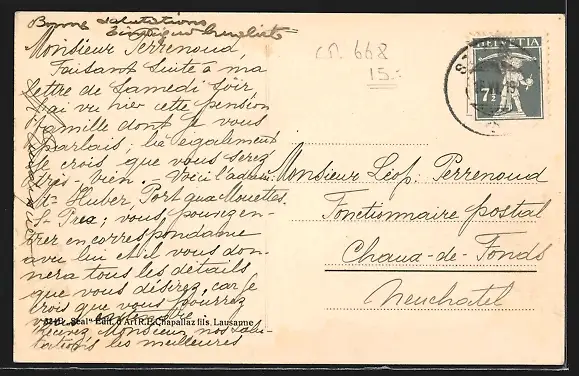 Bonne salutations
Monsieur Perrenoud,
Faisant suite à ma
lettre de Samedi soir,
j'ai vu hier cette pension
famille dont je vous
parlais; là également
je crois que vous serez
très-bien. - Voici l'adresse
Huber, Port aux Mouettes
St Prex; vous pourrez en-
trer en correspondance
avec lui et il vous don-
nera tous les détails
que vous désirez, car je
crois que vous pourrez
"Seal" Edit. d'Art R.E. Chapallaz fils, Lausanne
Monsieur nos salu-
tations les meilleures
CM 668
15.-
HELVETIA
7½
Monsieur Léop. Perrenoud
Fonctionnaire postal
Chaux-de-Fonds
Neuchatel